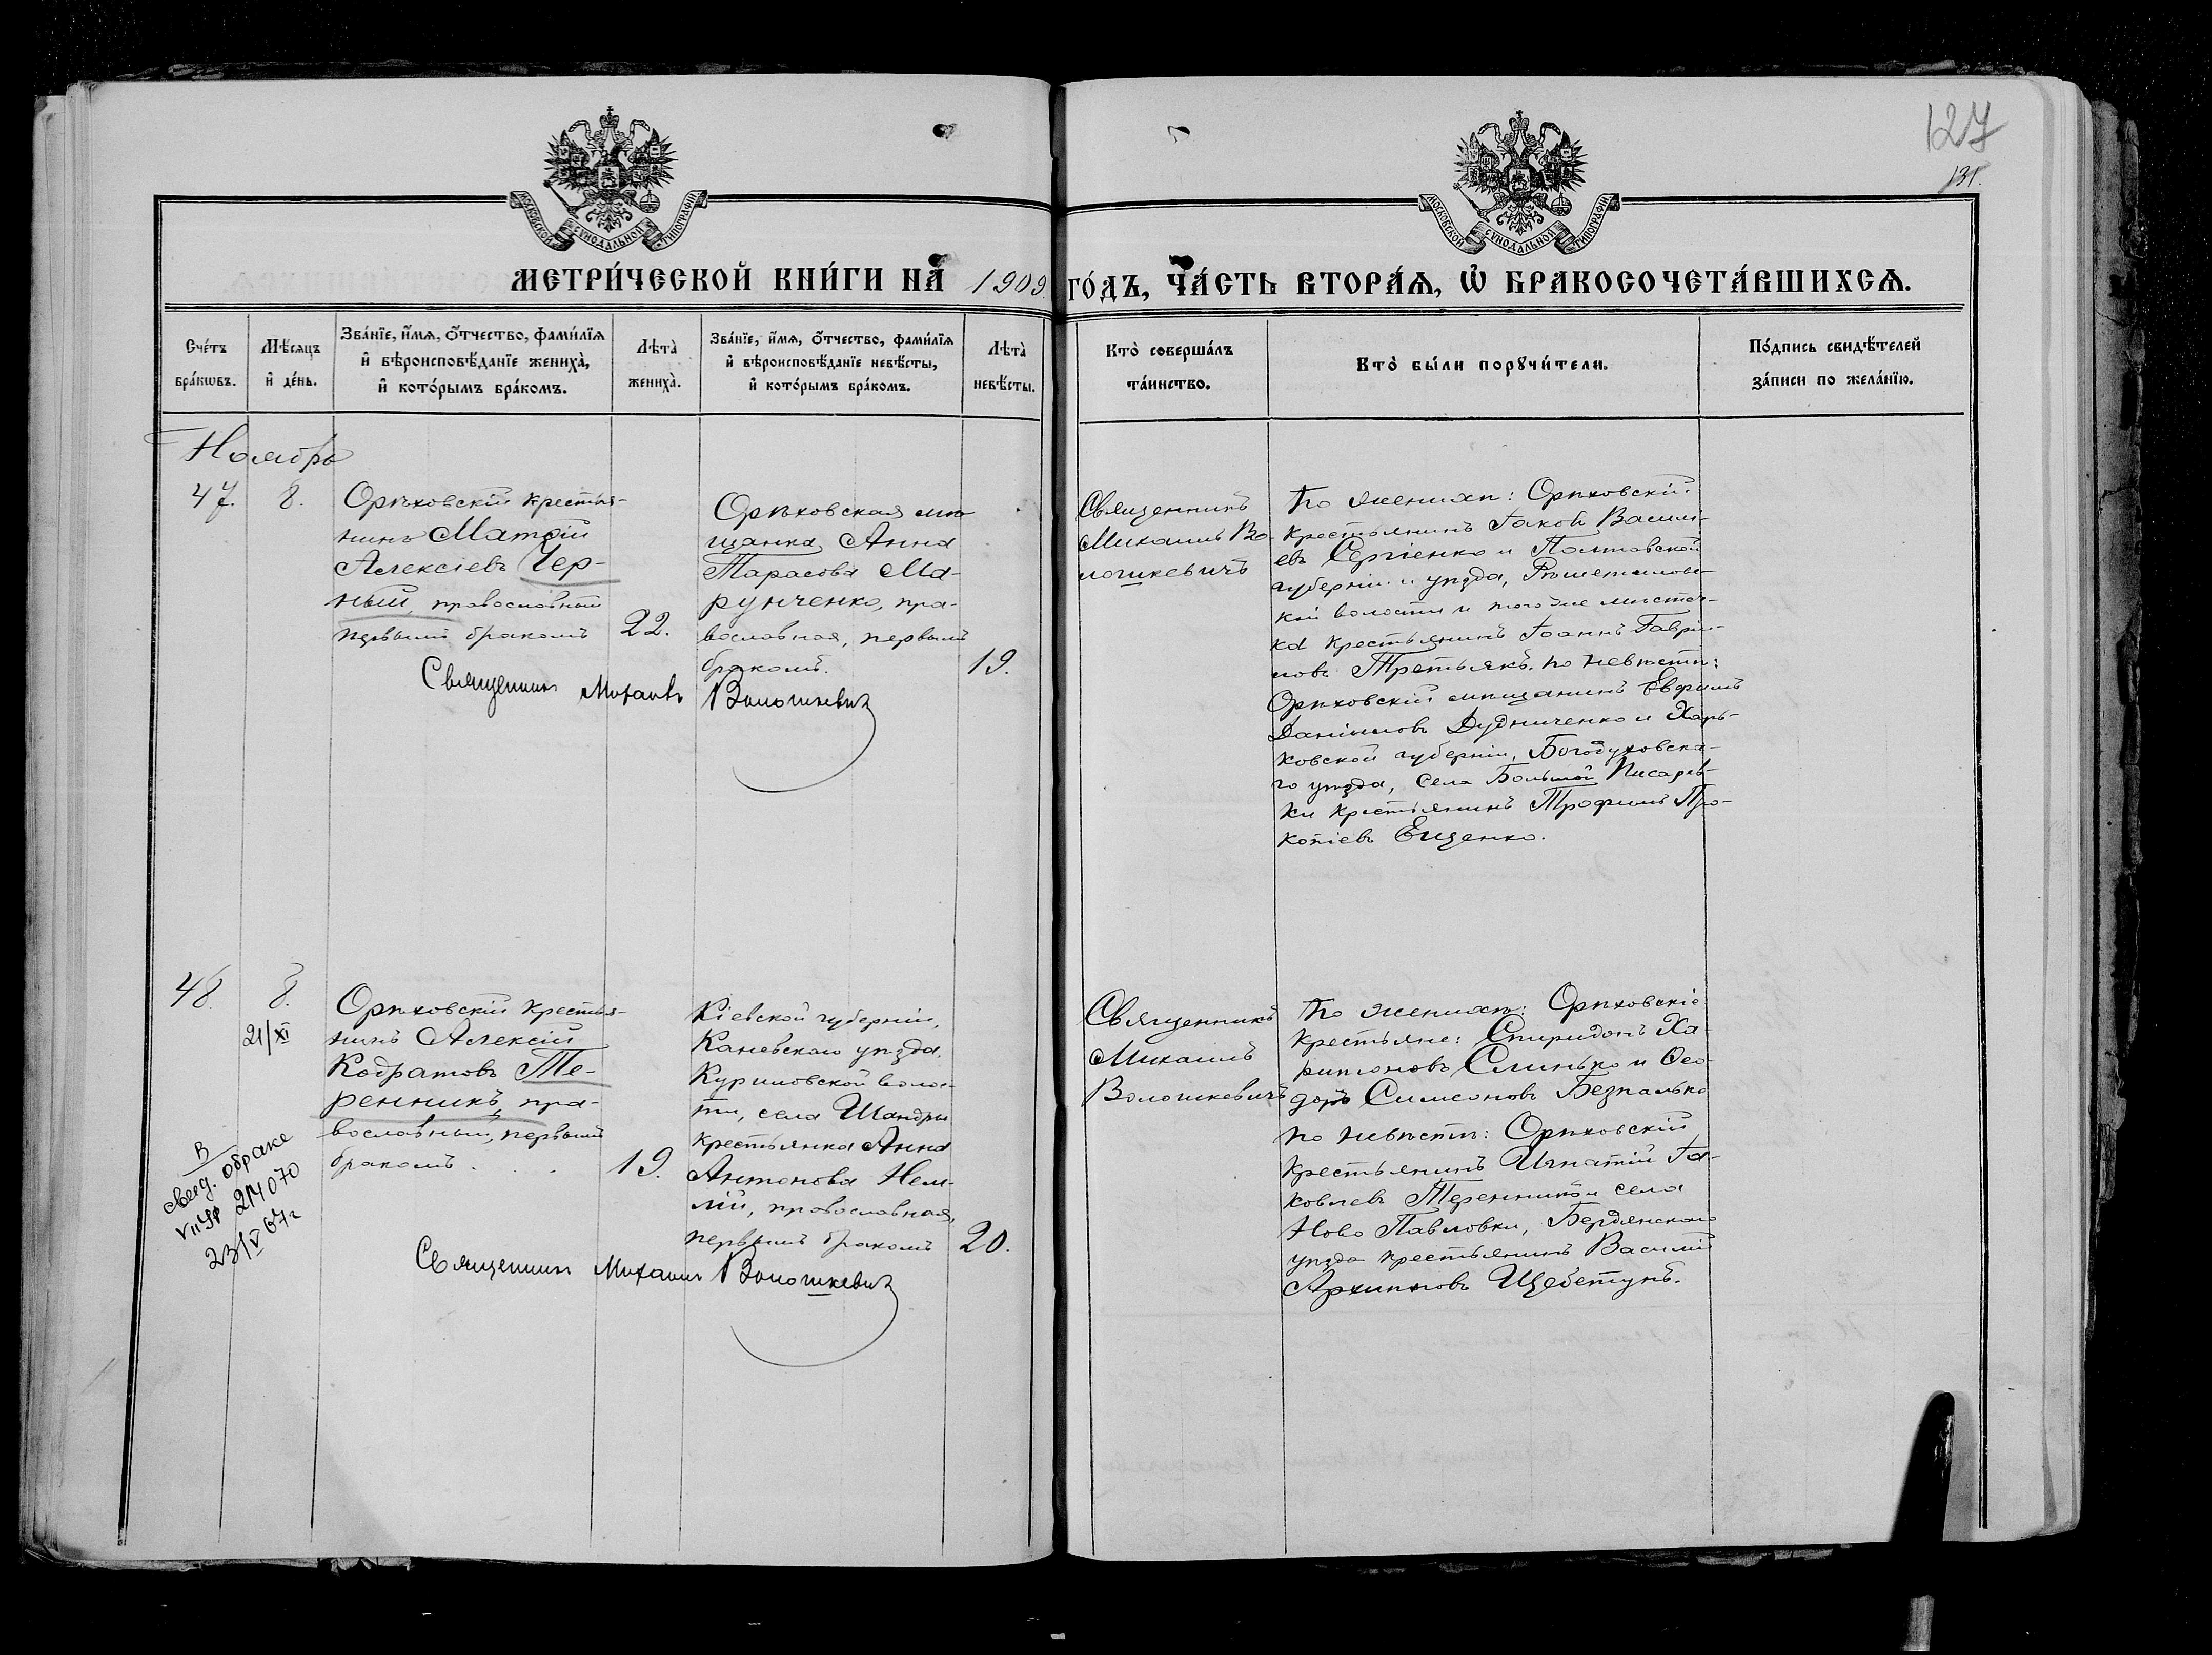 127
131.
МОСКОВСКОЙ СУНОДАЛЬНОЙ ТИПОГРАФІИ
МОСКОВСКОЙ СУНОДАЛЬНОЙ ТИПОГРАФІИ
МЕТРИ́ЧЕСКОЙ КНИ́ГИ НА 1909 ГО́ДЪ, ЧА́СТЬ ВТОРА́Ѧ, Ѡ҆ БРАКОСОЧЕТА́ВШИХСѦ.
Счетъ
бракωвъ.
Мѣсяцъ
и день.
Званіе, имя, отчество, фамилія
и вѣроисповѣданіе жениха,
и которымъ бракомъ.
Лѣта
жениха.
Званіе, имя, отчество, фамилія
и вѣроисповѣданіе невѣсты,
и которымъ бракомъ.
Лѣта
невѣсты.
Кто совершалъ
таинство.
Кто были порꙋчители.
Подпись свидѣтелей
записи по желанію.
Ноябрь
47.
8.
Орѣховскій крестья-
нинъ Матѳій
Алексіевъ Чер-
ный, православный
первымъ бракомъ
22.
Орѣховская мѣ-
щанка Анна
Тарасова Ма-
рунченко, пра-
вославная, первымъ
бракомъ.
19.
Священникъ Михаилъ Волошкевичъ
Священникъ
Михаилъ Во-
лошкевичъ
По женихѣ: Орѣховскій
крестьянинъ Іаковъ Василі-
евъ Сергіенко и Полтавской
губерніи и уѣзда, Рѣшетиловс-
кой волости и того же мѣстеч-
ка крестьянинъ Іоаннъ Гаврі-
ловъ Третьякъ. По невѣстѣ:
Орѣховскій мѣщанинъ Евфимъ
Даніиловъ Дудниченко и Харь-
ковской губерніи, Богодуховска-
го уѣзда, села Большой Писарев-
ки крестьянинъ Трофимъ Про-
копіевъ Ещенко.
48.
8.
21/XI
Орѣховскій крестья-
нинъ Алексій
Кодратовъ Те-
ренникъ, пра-
вославный, первымъ
бракомъ.
19.
Кіевской губерніи,
Каневскаго уѣзда.
Куриловской волос-
ти, села Шандры
крестьянка Анна
Антонова Нем-
лій, православная,
первымъ бракомъ
20.
В
свид. о браке
VII ЯР 214070
23/V 67г
Священникъ Михаилъ Волошкевичъ
Священникъ
Михаилъ
Волошкевичъ
По женихѣ: Орѣховскіе
крестьяне: Спиридонъ Ха-
ритоновъ Слинько и Ѳео-
доръ Симеоновъ Безпалько
по невѣстѣ: Орѣховскій
крестьянинъ Игнатій Іа-
ковлевъ Теренникъ и села
Ново Павловки, Бердянскаго
уѣзда крестьянинъ Василій
Архиповъ Щебетунъ.